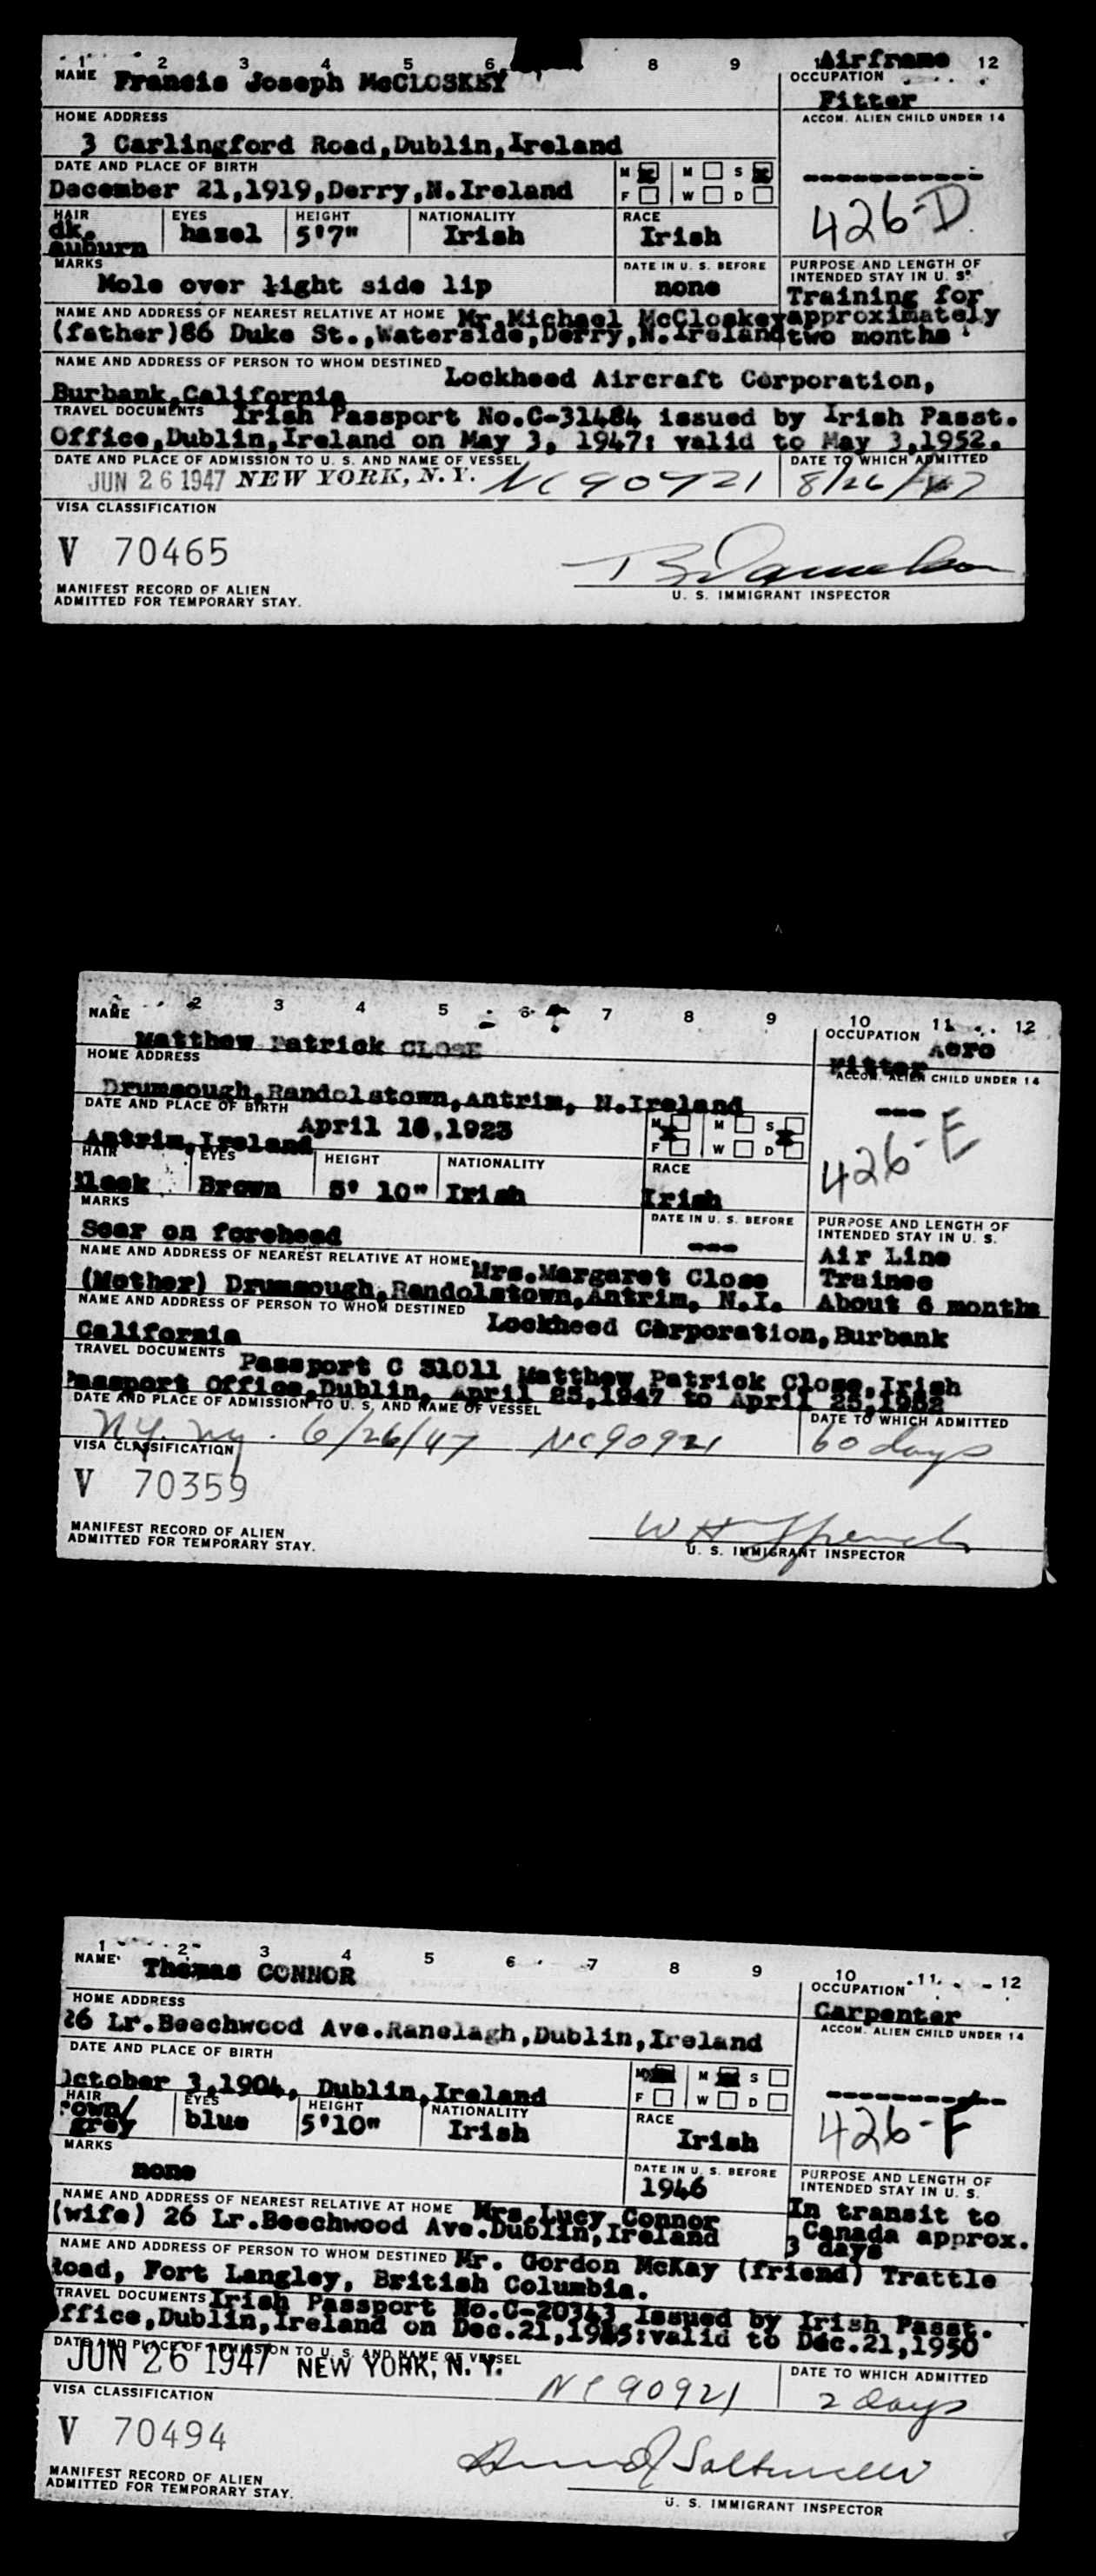 1 2 3 4 5 6 8 9 12
NAME Francis Joseph McCLOSKEY
OCCUPATION Airframe
Fitter
HOME ADDRESS
3 Carlingford Road,Dublin,Ireland
ACCOM. ALIEN CHILD UNDER 14
------------
DATE AND PLACE OF BIRTH
December 21,1919,Derry,N.Ireland
M M S
F W D
426-D
HAIR EYES HEIGHT NATIONALITY RACE
dk. auburn hazel 5'7" Irish Irish
MARKS
Mole over light side lip
DATE IN U. S. BEFORE
none
PURPOSE AND LENGTH OF
INTENDED STAY IN U. S.
Training for
approximately
two months
NAME AND ADDRESS OF NEAREST RELATIVE AT HOME Mr.Michael McCloskey
(father)86 Duke St.,Waterside,Derry,N.Ireland
NAME AND ADDRESS OF PERSON TO WHOM DESTINED Lockheed Aircraft Corporation,
Burbank,California
TRAVEL DOCUMENTS Irish Passport No.C-31484 issued by Irish Passt.
Office,Dublin,Ireland on May 3, 1947: valid to May 3,1952.
DATE AND PLACE OF ADMISSION TO U. S. AND NAME OF VESSEL
JUN 26 1947 NEW YORK, N.Y. NC 90921
DATE TO WHICH ADMITTED
8/26/47
VISA CLASSIFICATION
V 70465
MANIFEST RECORD OF ALIEN
ADMITTED FOR TEMPORARY STAY.
U. S. IMMIGRANT INSPECTOR
2 3 4 5 6 7 8 9 10 11 12
NAME
Matthew Patrick CLOSE
OCCUPATION Aero
Fitter
HOME ADDRESS
Drumsough,Randolstown,Antrim, N.Ireland
ACCOM. ALIEN CHILD UNDER 14
---
DATE AND PLACE OF BIRTH
April 18,1923
Antrim,Ireland
M M S
F W D
426-E
HAIR EYES HEIGHT NATIONALITY RACE
Black Brown 5' 10" Irish Irish
MARKS
Scar on forehead
DATE IN U. S. BEFORE
---
PURPOSE AND LENGTH OF
INTENDED STAY IN U. S.
Air Line
Trainee
About 6 months
NAME AND ADDRESS OF NEAREST RELATIVE AT HOME Mrs.Margaret Close
(Mother) Drumsough,Randolstown,Antrim, N.I.
NAME AND ADDRESS OF PERSON TO WHOM DESTINED Lockheed Corporation,Burbank
California
TRAVEL DOCUMENTS Passport C 31011 Matthew Patrick Close,Irish
Passport Office,Dublin, April 25,1947 to April 25,1952
DATE AND PLACE OF ADMISSION TO U. S. AND NAME OF VESSEL
N.Y. N.Y. 6/26/47 NC90921
DATE TO WHICH ADMITTED
60 days
VISA CLASSIFICATION
V 70359
MANIFEST RECORD OF ALIEN
ADMITTED FOR TEMPORARY STAY.
U. S. IMMIGRANT INSPECTOR
1 2 3 4 5 6 7 8 9 10 11 12
NAME Thomas CONNOR
OCCUPATION
Carpenter
HOME ADDRESS
26 Lr.Beechwood Ave.Ranelagh,Dublin,Ireland
ACCOM. ALIEN CHILD UNDER 14
------------
DATE AND PLACE OF BIRTH
October 3,1904, Dublin,Ireland
M M S
F W D
426-F
HAIR EYES HEIGHT NATIONALITY RACE
rown/ grey blue 5'10" Irish Irish
MARKS
none
DATE IN U. S. BEFORE
1946
PURPOSE AND LENGTH OF
INTENDED STAY IN U. S.
In transit to
Canada approx.
3 days
NAME AND ADDRESS OF NEAREST RELATIVE AT HOME Mrs.Lucy Connor
(wife) 26 Lr.Beechwood Ave.Dublin,Ireland
NAME AND ADDRESS OF PERSON TO WHOM DESTINED Mr. Gordon McKay (friend) Trattle
Road, Fort Langley, British Columbia.
TRAVEL DOCUMENTS Irish Passport No.C-20343 Issued by Irish Passt.
Office,Dublin,Ireland on Dec.21,1945:valid to Dec.21,1950
DATE AND PLACE OF ADMISSION TO U. S. AND NAME OF VESSEL
JUN 26 1947 NEW YORK, N. Y. NC90921
DATE TO WHICH ADMITTED
2 days
VISA CLASSIFICATION
V 70494
MANIFEST RECORD OF ALIEN
ADMITTED FOR TEMPORARY STAY.
U. S. IMMIGRANT INSPECTOR